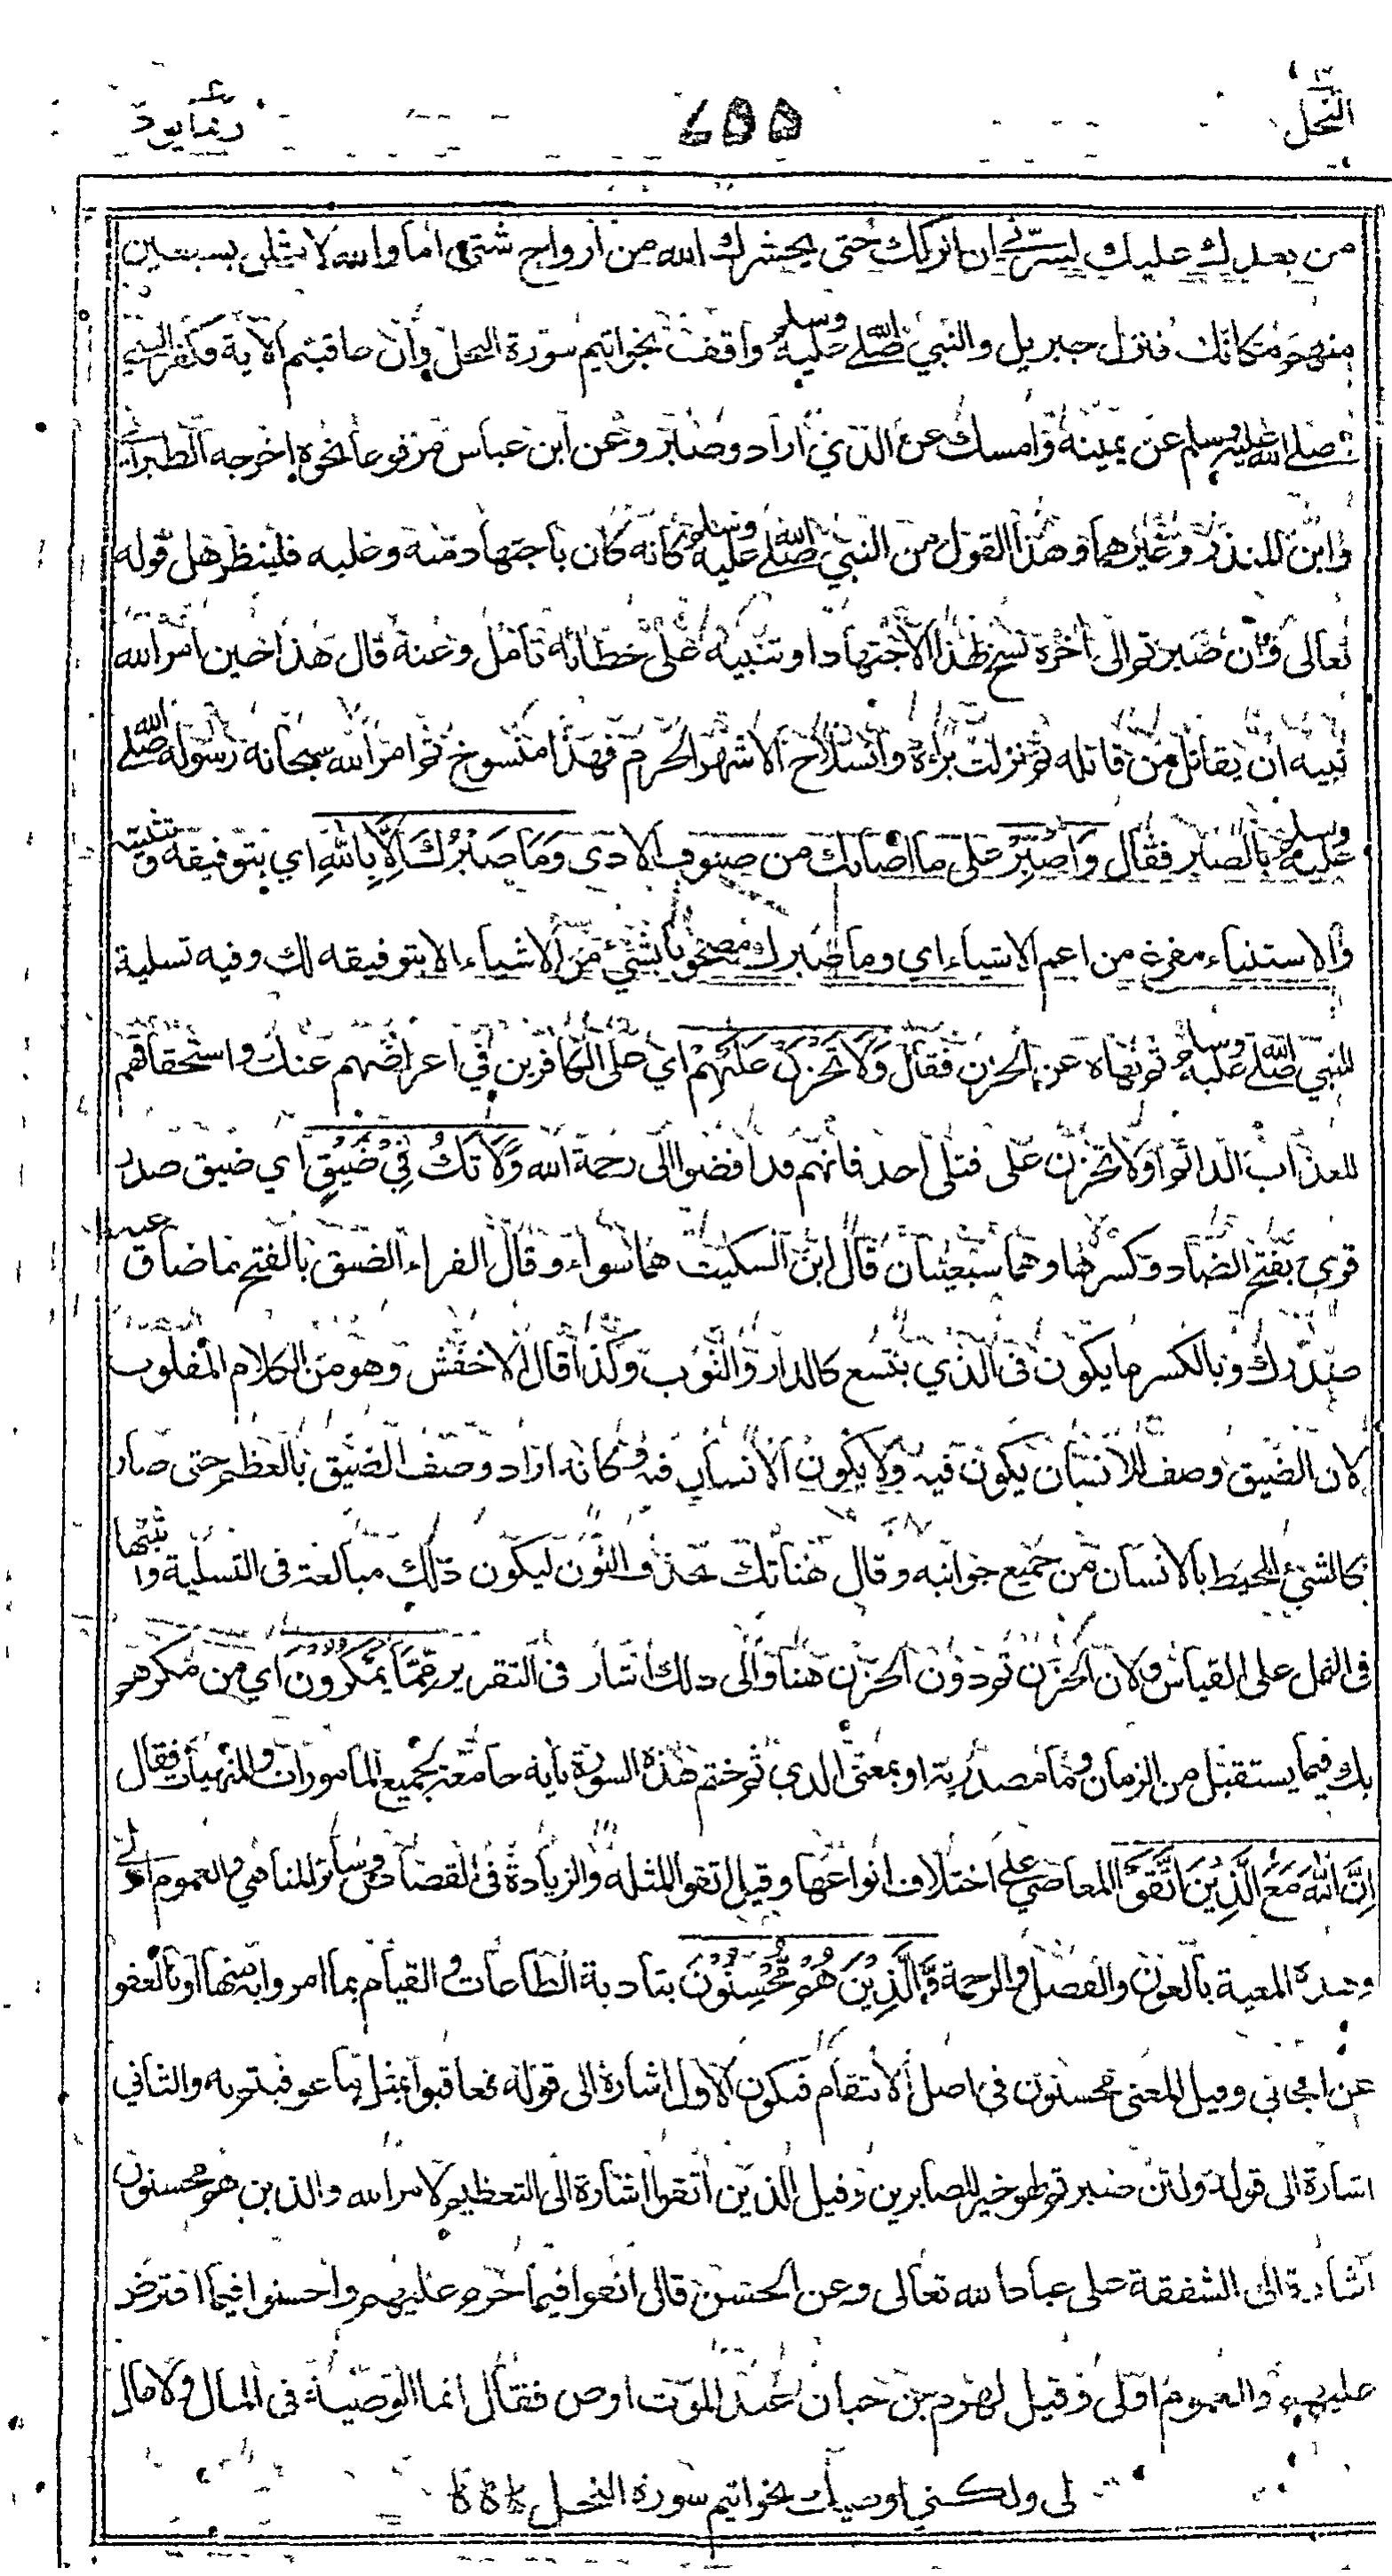 النحل ٧٥٥ ربما يود
من بعدك عليك لسرني ان اتركك حتى يحشرك الله من ارواح شتى اما والله لامثلن بسبعين
منهم مكانك فنزل جبريل والنبي صلى الله عليه وسلم واقف بخواتيم سورة النحل وان عاقبتم الآية فكفر النبي
صلى الله عليه وسلم عن يمينه وامسك عن الذي اراد وصبر وعن ابن عباس مرفوعا نحوه اخرجه الطبراني
وابن المنذر وغيرهما وهذا القول من النبي صلى الله عليه وسلم كانه كان باجتهاد منه وعليه فلينظر هل قوله
تعالى ولئن صبرتم الى آخره نسخ لهذا الاجتهاد او تنبيه على خطائه تأمل وعنه قال هذا حين امر الله
نبيه ان يقاتل من قاتله ثم نزلت براءة وانسلاخ الاشهر الحرم فهذا منسوخ ثم امر الله سبحانه رسوله صلى الله
عليه وسلم بالصبر فقال وَاصْبِرْ على ما اصابك من صنوف الاذى وَمَا صَبْرُكَ اِلَّا بِاللّٰهِ اي بتوفيقه وتثبيته
والاستثناء مفرغ من اعم الاشياء اي وما صبرك مصحوبا بشئ من الاشياء الا بتوفيقه لك وفيه تسلية
للنبي صلى الله عليه وسلم ثم نهاه عن الحزن فقال وَلَا تَحْزَنْ عَلَيْهِمْ اي على الكافرين في اعراضهم عنك واستحقاقهم
للعذاب الدائم او لا تحزن على قتلى احد فانهم قد افضوا الى رحمة الله وَلَا تَكُ فِيْ ضَيْقٍ اي ضيق صدر
قرئ بفتح الضاد وكسرها وهما سبعيتان قال ابن السكيت هما سواء وقال الفراء الضيق بالفتح ما ضاق عنه
صدرك وبالكسر ما يكون فى الذي يتسع كالدار والثوب وكذا قال الاخفش وهو من الكلام المقلوب
لان الضيق وصف للانسان يكون فيه ولا يكون الانسان فيه وكانه اراد وصف الضيق بالعظم حتى صار
كالشئ المحيط بالانسان من جميع جوانبه وقال هنا تك بحذف النون ليكون ذلك مبالغة فى التسلية واثبتها
فى النمل على القياس ولان الحزن ثم دون الحزن هنا والى ذلك اشار فى التقرير مِّمَّا يَمْكُرُوْنَ اي من مكرهم
بك فيما يستقبل من الزمان وما مصدرية او بمعنى الذي ثم ختم هذه السورة بآية جامعة لجميع المأمورات والمنهيات فقال
اِنَّ اللّٰهَ مَعَ الَّذِيْنَ اتَّقَوْا المعاصي على اختلاف انواعها وقيل اتقوا المثلة والزيادة فى القصاص وسائر المناهي والعموم اولى
وهذه المعية بالعون والفضل والرحمة وَّالَّذِيْنَ هُمْ مُّحْسِنُوْنَ بتادية الطاعات والقيام بما امروا به منها او بالعفو
عن الجاني وقيل المعنى محسنون في اصل الانتقام فيكون الاول اشارة الى قوله فعاقبوا بمثل ما عوقبتم به والثاني
اشارة الى قوله ولئن صبرتم لهو خير للصابرين وقيل الذين اتقوا اشارة الى التعظيم لامر الله والذين هم محسنون
اشارة الى الشفقة على عباد الله تعالى وعن الحسن قال اتقوا فيما حرم عليهم واحسنوا فيما افترض
عليهم والعموم اولى وقيل لهرم بن حبان عند الموت اوص فقال انما الوصية فى المال ولا مال
لى ولكني اوصيك بخواتيم سورة النحل